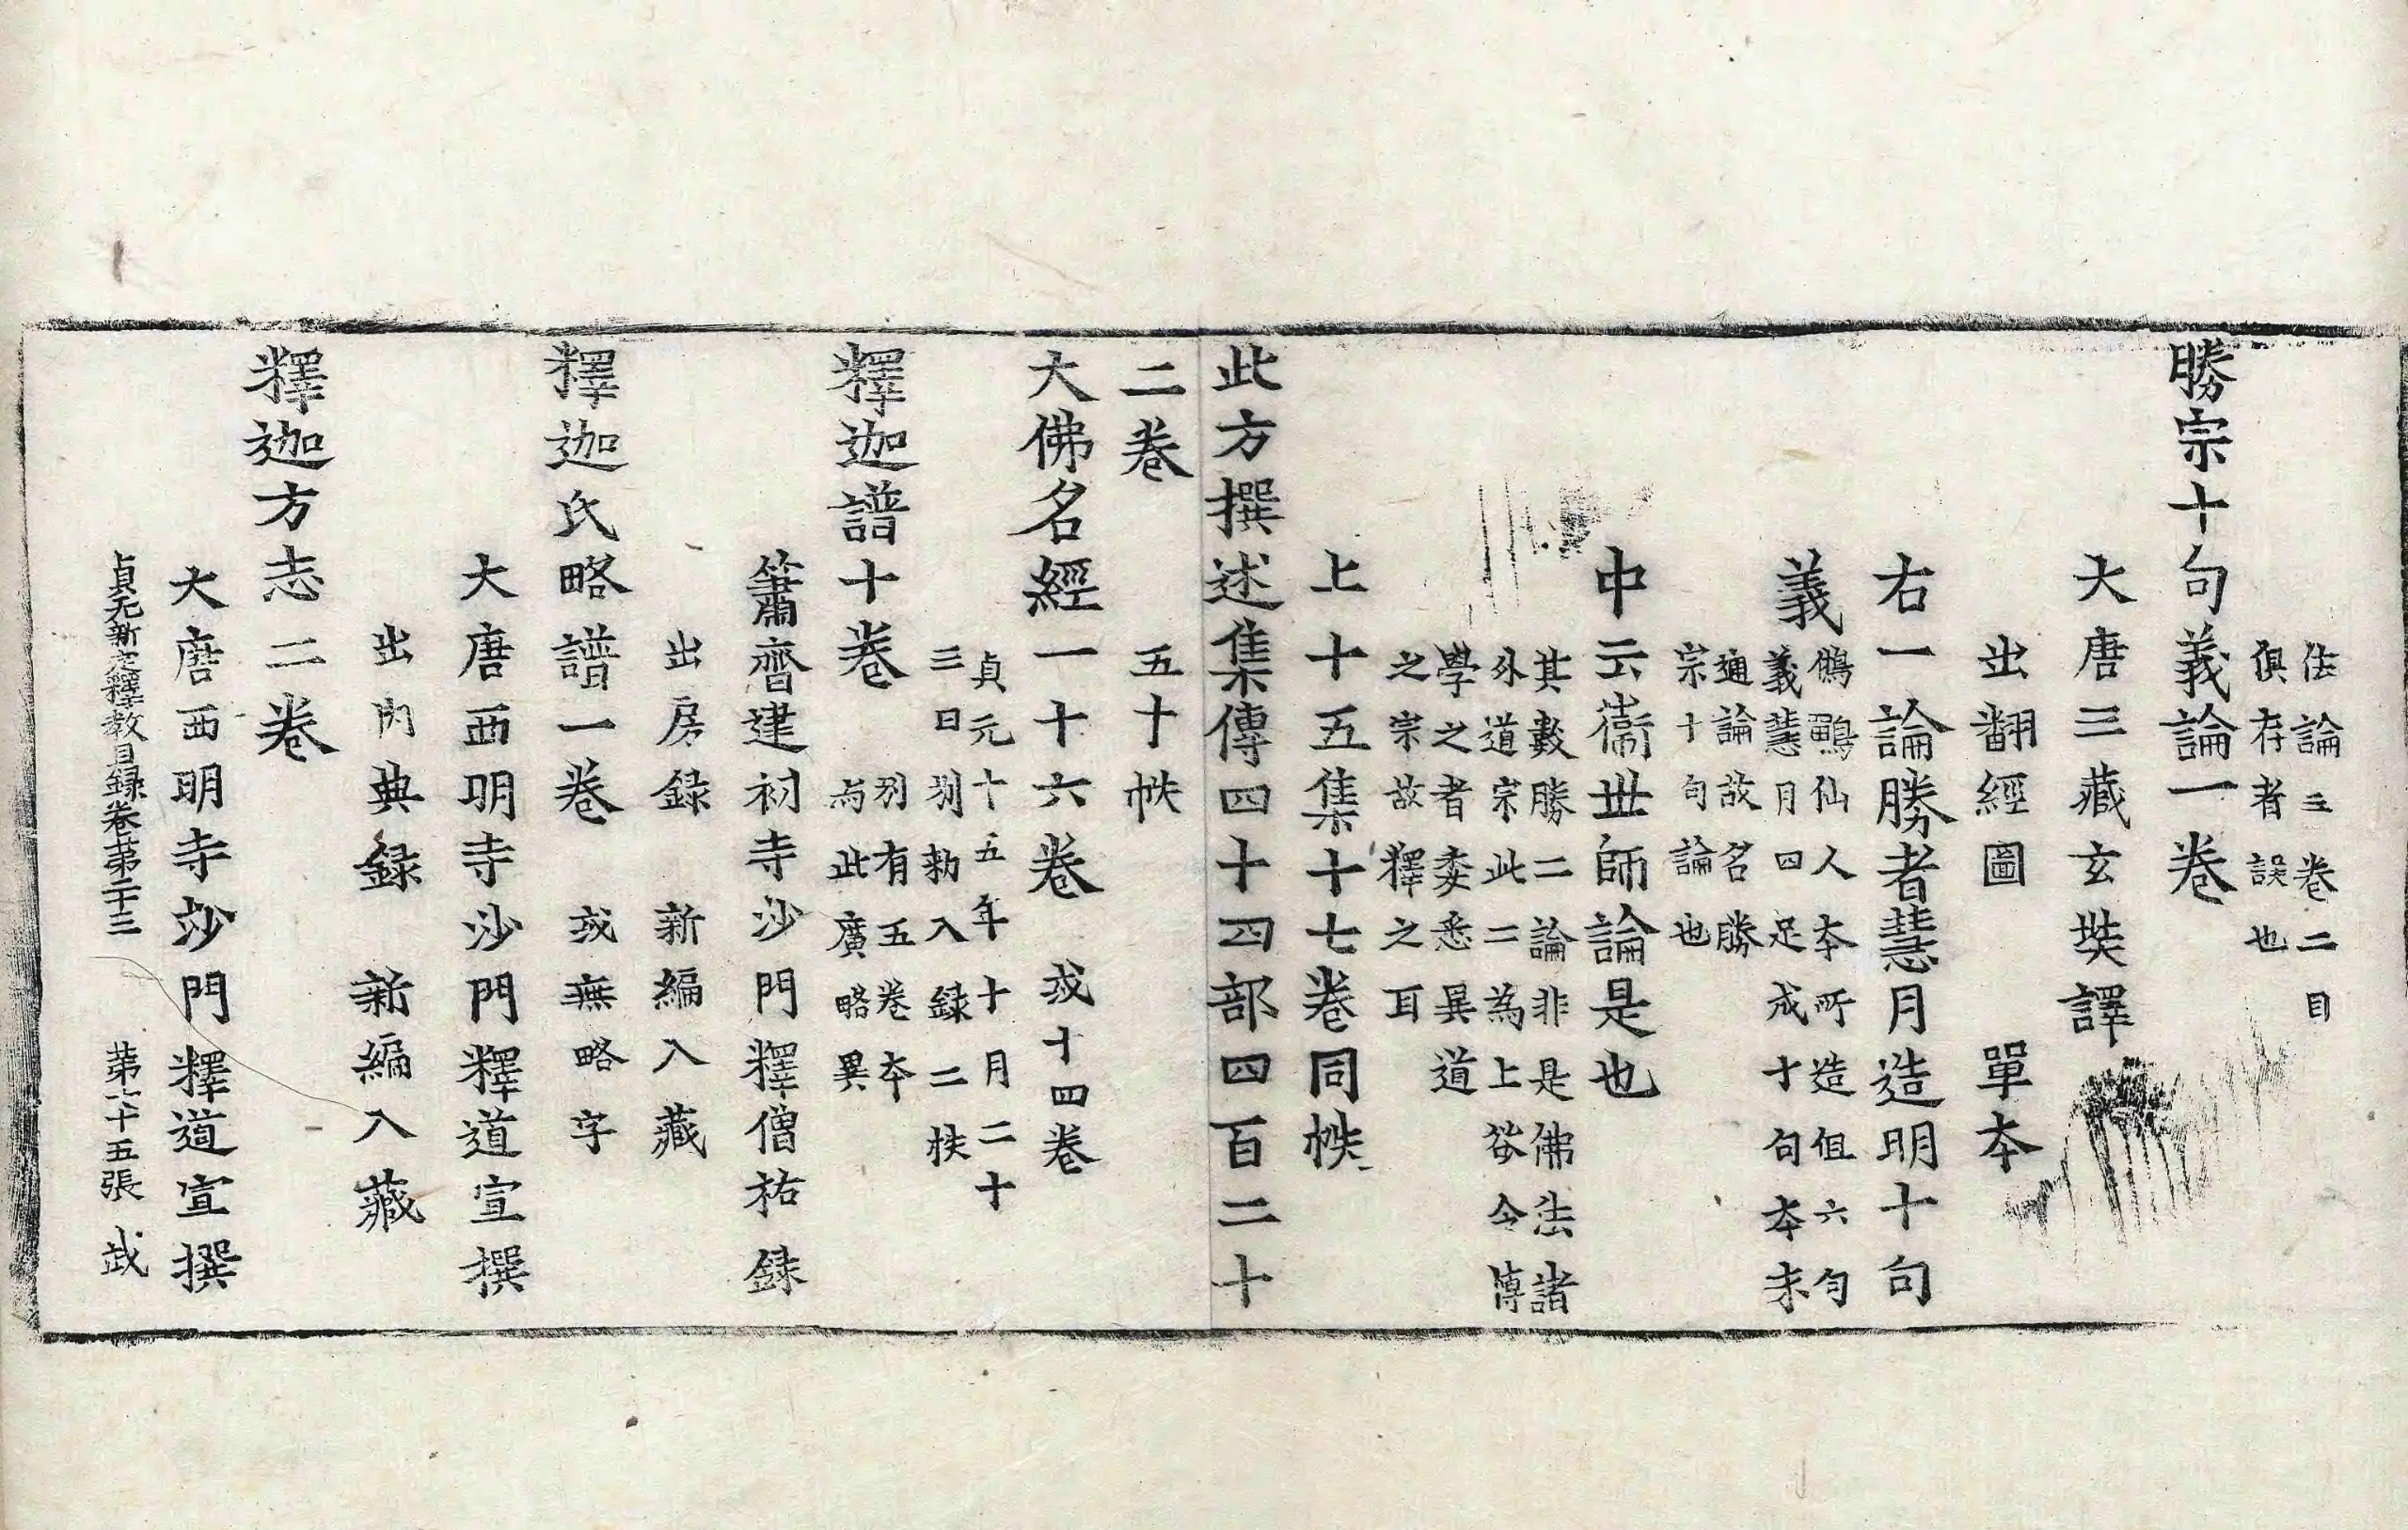 法論三卷二目
俱存者誤也
勝宗十句義論一卷
大唐三藏玄奘譯
出翻經圖 單本
右一論勝者慧月造明十句
義
鵂鶹仙人本所造但六句
義慧月四足成十句本末
通論故名勝
宗十句論也
中云衞世師論是也
其數勝二論非是佛法諸
外道宗此二為上欲令博
學之者委悉異道
之宗故釋之耳
上十五集十七卷同帙
此方撰述集傳四十四部四百二十
二卷 五十帙
大佛名經一十六卷 或十四卷
貞元十五年十月二十
三日別勑入録二帙
釋迦譜十卷
別有五卷本
与此廣略異
簫齊建初寺沙門釋僧祐録
出房録 新編入藏
釋迦氏略譜一卷 或無略字
大唐西明寺沙門釋道宣撰
出內典録 新編入藏
釋迦方志二卷
大唐西明寺沙門釋道宣撰
貞元新定釋教目録卷苐二十三 苐六十五張 武